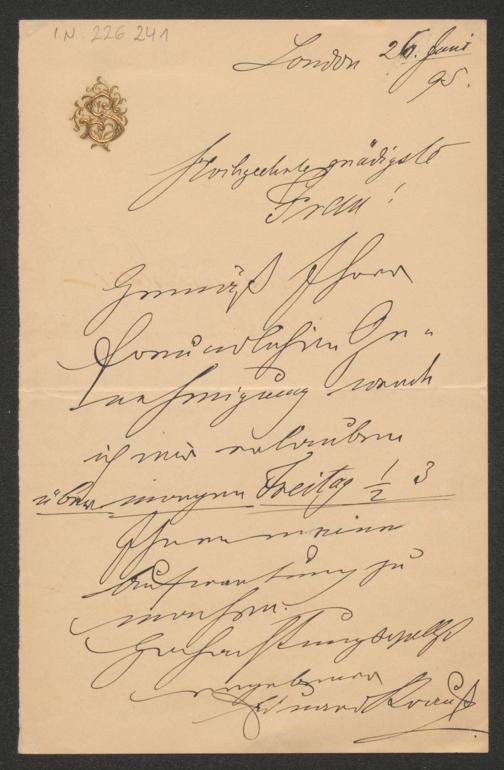 IN 226.241
London 26. Juni
95.
S
Hochgeehrte gnädigste
Frau!
Gemäß Ihrer
freundlichen Ge-
nehmigung werde
ich mir erlauben
über-morgen Freitag ½ 3
Ihnen meine
Aufwartung zu
machen.
Hochachtungsvollst
ergebener
Eduard Strauß